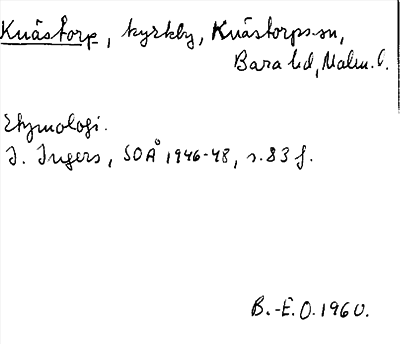 Knästorp, kyrkby, Knästorps sn,
Bara hd, Malm. l.
Etymologi.
I. Ingers, SOÅ 1946-48, s. 83 f.
B.-E.O. 1960.